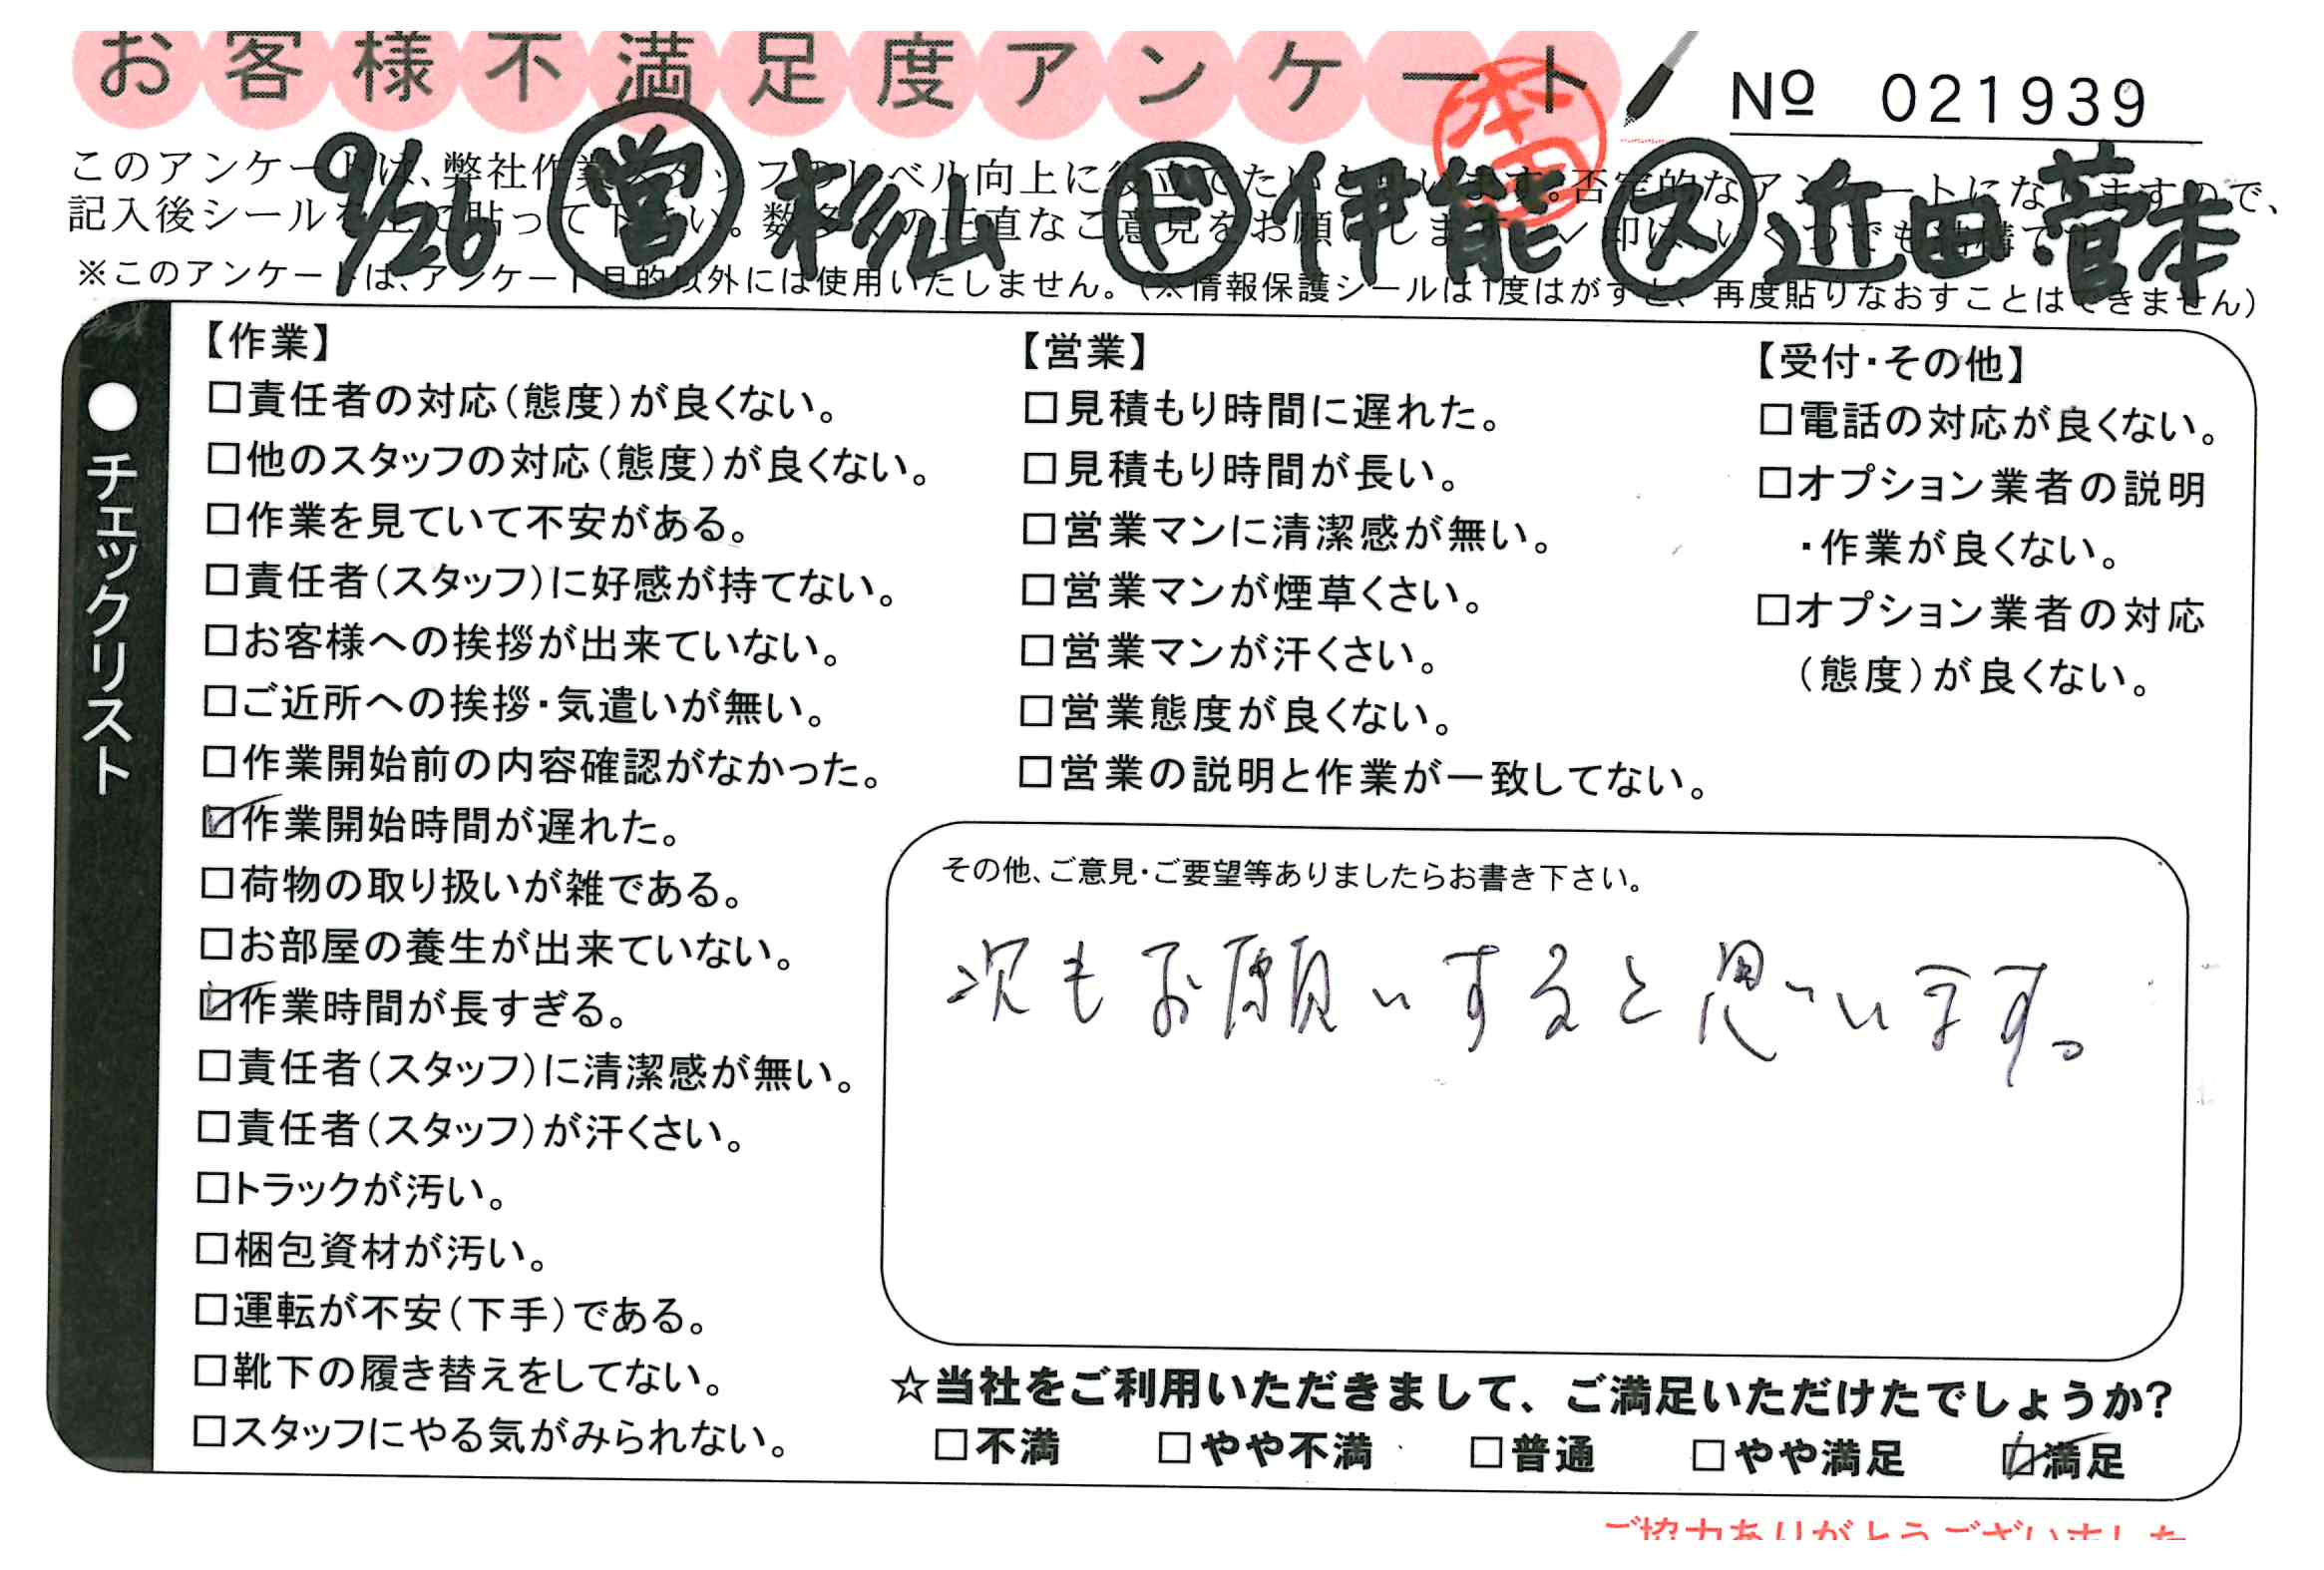 お客様不満足度アンケート
№ 021939
9/26 営 杉山 ド 伊能 ス 近田 菅本
本田
このアンケートは、弊社作業スタッフのレベル向上に役立てたいと思います。否定的なアンケートになりますので、
記入後シールを上に貼って下さい。数多くの正直なご意見をお願いします。レ印は、いくつでも結構です。
※このアンケートは、アンケート目的以外には使用いたしません。(※情報保護シールは1度はがすと、再度貼りなおすことはできません)
●チェックリスト
【作業】
□責任者の対応(態度)が良くない。
□他のスタッフの対応(態度)が良くない。
□作業を見ていて不安がある。
□責任者(スタッフ)に好感が持てない。
□お客様への挨拶が出来ていない。
□ご近所への挨拶・気遣いが無い。
□作業開始前の内容確認がなかった。
☑作業開始時間が遅れた。
□荷物の取り扱いが雑である。
□お部屋の養生が出来ていない。
☑作業時間が長すぎる。
□責任者(スタッフ)に清潔感が無い。
□責任者(スタッフ)が汗くさい。
□トラックが汚い。
□梱包資材が汚い。
□運転が不安(下手)である。
□靴下の履き替えをしてない。
□スタッフにやる気がみられない。
【営業】
□見積もり時間に遅れた。
□見積もり時間が長い。
□営業マンに清潔感が無い。
□営業マンが煙草くさい。
□営業マンが汗くさい。
□営業態度が良くない。
□営業の説明と作業が一致してない。
【受付・その他】
□電話の対応が良くない。
□オプション業者の説明
・作業が良くない。
□オプション業者の対応
(態度)が良くない。
その他、ご意見・ご要望等ありましたらお書き下さい。
次もお願いすると思います。
☆当社をご利用いただきまして、ご満足いただけたでしょうか?
□不満 □やや不満 □普通 □やや満足 ☑満足
ご協力ありがとうございました